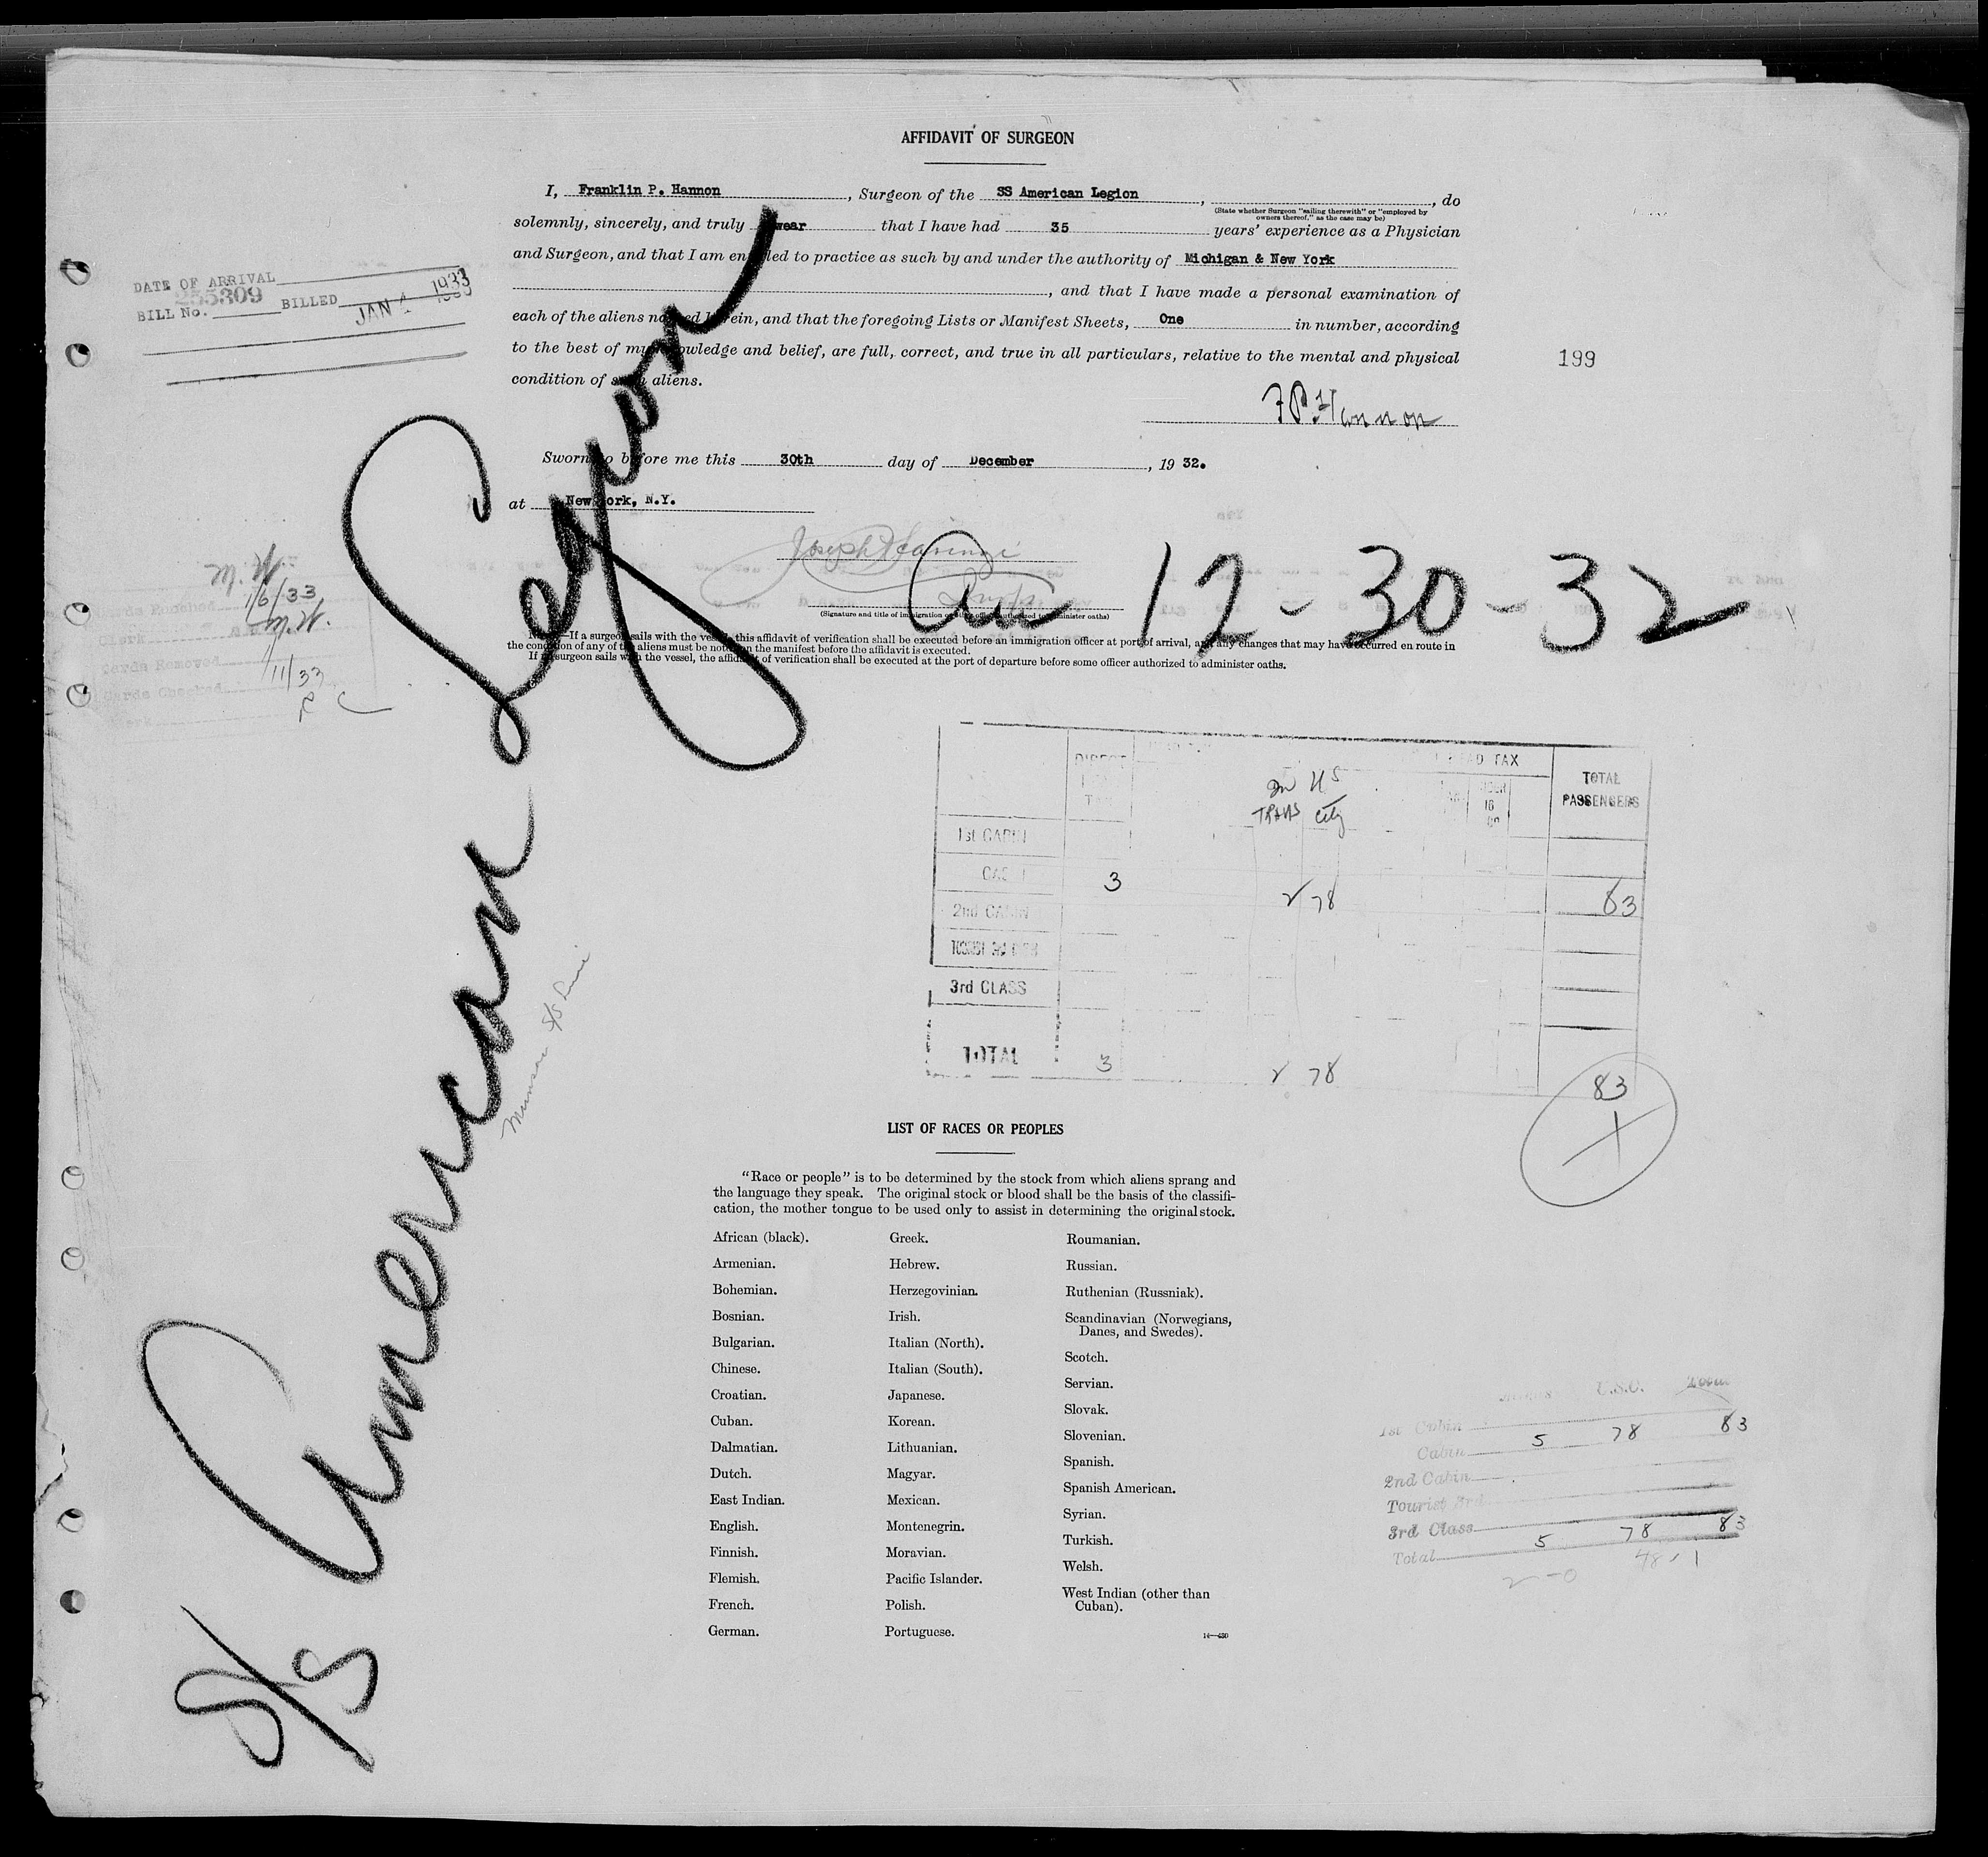 AFFIDAVIT OF SURGEON
I, Franklin P. Hannon, Surgeon of the SS American Legion, , do
(State whether Surgeon "sailing therewith" or "employed by
owners thereof," as the case may be)
solemnly, sincerely, and truly swear that I have had 35 years' experience as a Physician
and Surgeon, and that I am entitled to practice as such by and under the authority of Michigan & New York
, and that I have made a personal examination of
each of the aliens named herein, and that the foregoing Lists or Manifest Sheets, One in number, according
to the best of my knowledge and belief, are full, correct, and true in all particulars, relative to the mental and physical
condition of such aliens.
F P Hannon
Sworn to before me this 30th day of December, 19 32.
at New York, N.Y.
Joseph
(Signature and title of immigration or administer oaths)
NOTE.—If a surgeon sails with the vessel, this affidavit of verification shall be executed before an immigration officer at port of arrival, and any changes that may have occurred en route in
the condition of any of the aliens must be noted on the manifest before the affidavit is executed.
If no surgeon sails with the vessel, the affidavit of verification shall be executed at the port of departure before some officer authorized to administer oaths.
DATE OF ARRIVAL
BILL No. 255309 BILLED JAN 4 1933
199
M. W.
Cards Punched 1/6/33
Clerk M.W.
Cards Removed
Cards Checked 1/11/33
Clerk
S/S American Legion
Munson S/S Line
Arr 12-30-32
DIRECT HEAD TAX TOTAL
PASSENGERS
In U S
TRANS City
16
1st CABIN
CABIN 3 2 78 83
2nd CABIN
TOURIST 3rd
3rd CLASS
TOTAL 3 2 78 83
LIST OF RACES OR PEOPLES
"Race or people" is to be determined by the stock from which aliens sprang and
the language they speak. The original stock or blood shall be the basis of the classifi-
cation, the mother tongue to be used only to assist in determining the original stock.
African (black).
Armenian.
Bohemian.
Bosnian.
Bulgarian.
Chinese.
Croatian.
Cuban.
Dalmatian.
Dutch.
East Indian.
English.
Finnish.
Flemish.
French.
German.
Greek.
Hebrew.
Herzegovinian.
Irish.
Italian (North).
Italian (South).
Japanese.
Korean.
Lithuanian.
Magyar.
Mexican.
Montenegrin.
Moravian.
Pacific Islander.
Polish.
Portuguese.
Roumanian.
Russian.
Ruthenian (Russniak).
Scandinavian (Norwegians,
Danes, and Swedes).
Scotch.
Servian.
Slovak.
Slovenian.
Spanish.
Spanish American.
Syrian.
Turkish.
Welsh.
West Indian (other than
Cuban).
14—430
Aliens U.S.C. Total
1st Cabin
Cabin 5 78 83
2nd Cabin
Tourist 3rd
3rd Class
Total 5 78 83
2-0 48-1